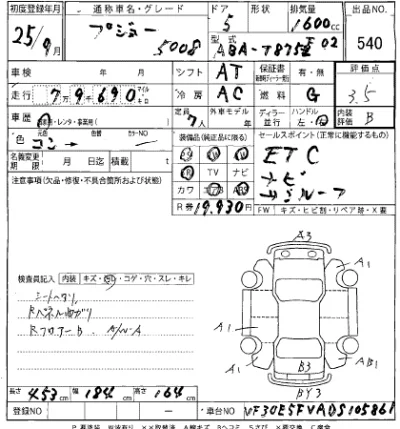 初度登録年月 通称車名・グレード ドア 形状 排気量 出品NO.
25/9月 プジョー 5008 5 1600cc 540
型式 ABA-T875F02
車検 年 月 シフト AT 保証書 有・無 評価点
走行 7万9千690 冷房 AC 燃料 G 3.5
車歴 レンタ・事業用 定員 7人 外車モデル 年 ディーラー 並行 ハンドル 左・ 内装評価 B
色 元色 色替 カラーNO
コン→
装備品(純正品に限る) セールスポイント(正常に機能するもの)
名義変更期限 月 日迄 積載 t
TV ナビ
ETC
ナビ
サンルーフ
注意事項(欠品・修復・不具合箇所および状態)
カワ エアB ABS
R券 19,930円 FW キズ・ヒビ割・リペア跡・X要
A3
A1 A1
検査員記入 内装 キズ・ ・コゲ・穴・スレ・キレ
シートヘタリ
Rパネル曲がり
RフロアーB
A1 A AB1
B3
BY3
長さ 453cm 幅 184cm 高さ 164cm
登録NO ー 車台NO VF30E5FVADS105861